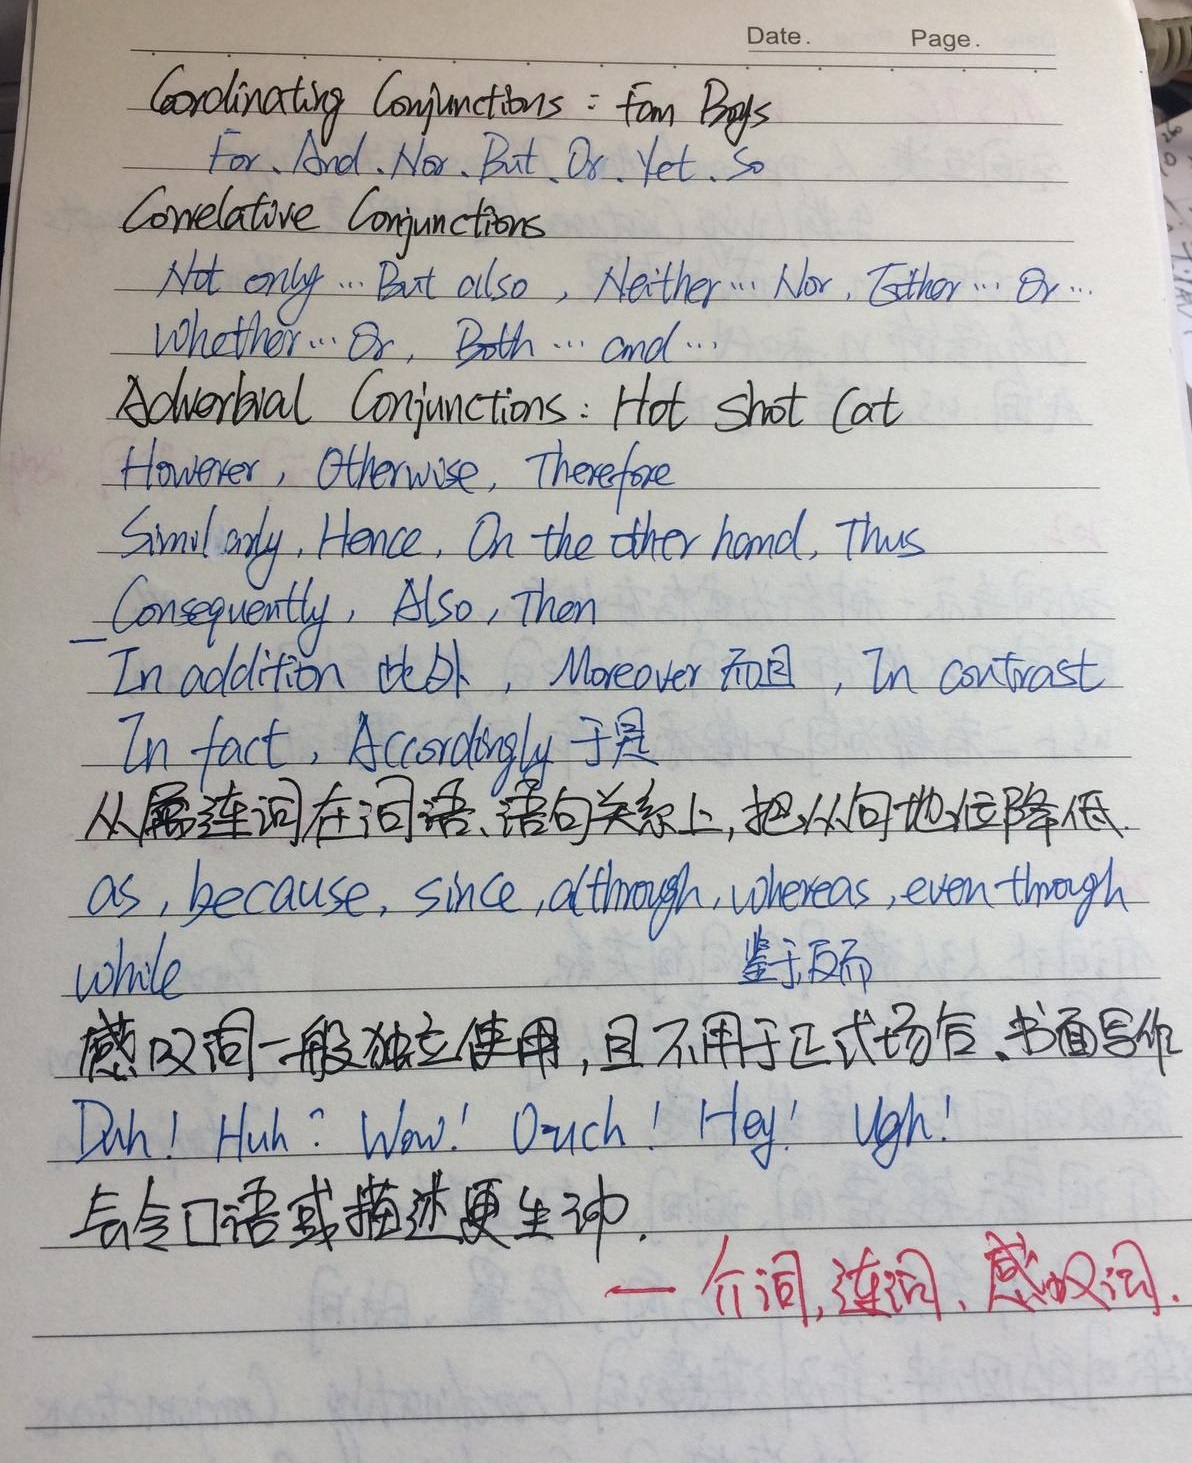 Date. Page.
Coordinating Conjunctions : Fan Boys
For、And、Nor、But、Or、Yet、So
Correlative Conjunctions
Not only … But also , Neither … Nor , Either … Or …
Whether … Or , Both … and …
Adverbial Conjunctions : Hot Shot Cat
However , Otherwise , Therefore
Similarly , Hence , On the other hand , Thus
Consequently , Also , Then
In addition 此外 , Moreover 而且 , In contrast
In fact , Accordingly 于是
从属连词在词语、语句关系上,把从句地位降低.
as , because , since , althrough , whereas , even through
while 鉴于,反而
感叹词一般独立使用,且不用于正式场合、书面写作
Duh! Huh? Wow! Ouch! Hey! Ugh!
会令口语或描述更生动.
— 介词,连词、感叹词.